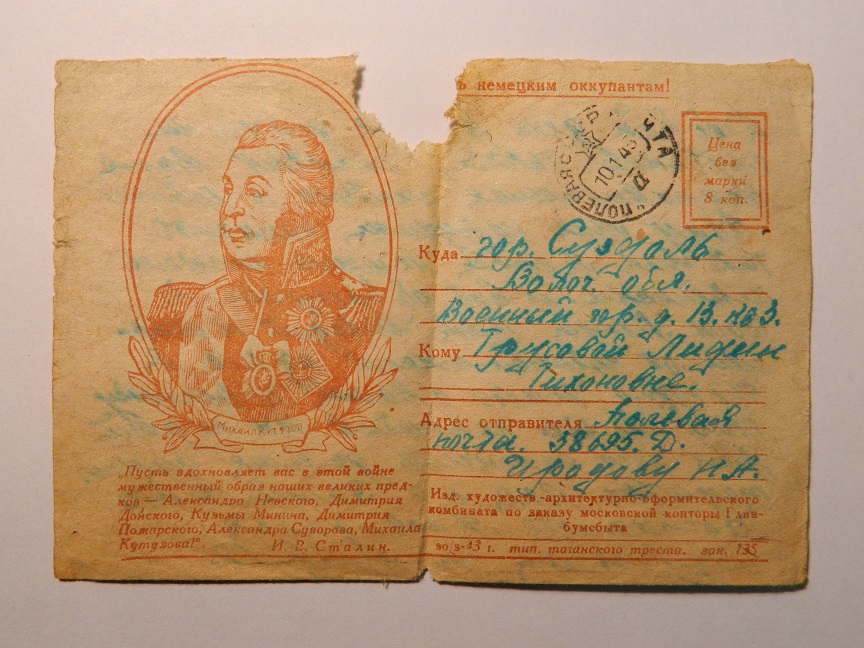 немецким оккупантам!
ПОЛЕВАЯ
ЧТА
10 1 4
Цена
без
марки
8 коп.
Куда гор. Суздаль
Волог. обл.
Военный гор. д. 13. кв 3.
Кому Трусовой Лидии
Тихоновне.
Адрес отправителя Полевая
почта. 38695. Д.
Михаил Кутузов
„Пусть вдохновляет вас в этой войне
мужественный образ наших великих пред-
ков — Александра Невского, Димитрия
Донского, Кузьмы Минина, Димитрия
Пожарского, Александра Суворова, Михаила
Кутузова!".
И. В. Сталин.
Изд. художеств.-архитектурно-оформительского
комбината по заказу московской конторы Глав-
бумсбыта
тип. таганского треста. зак. 135